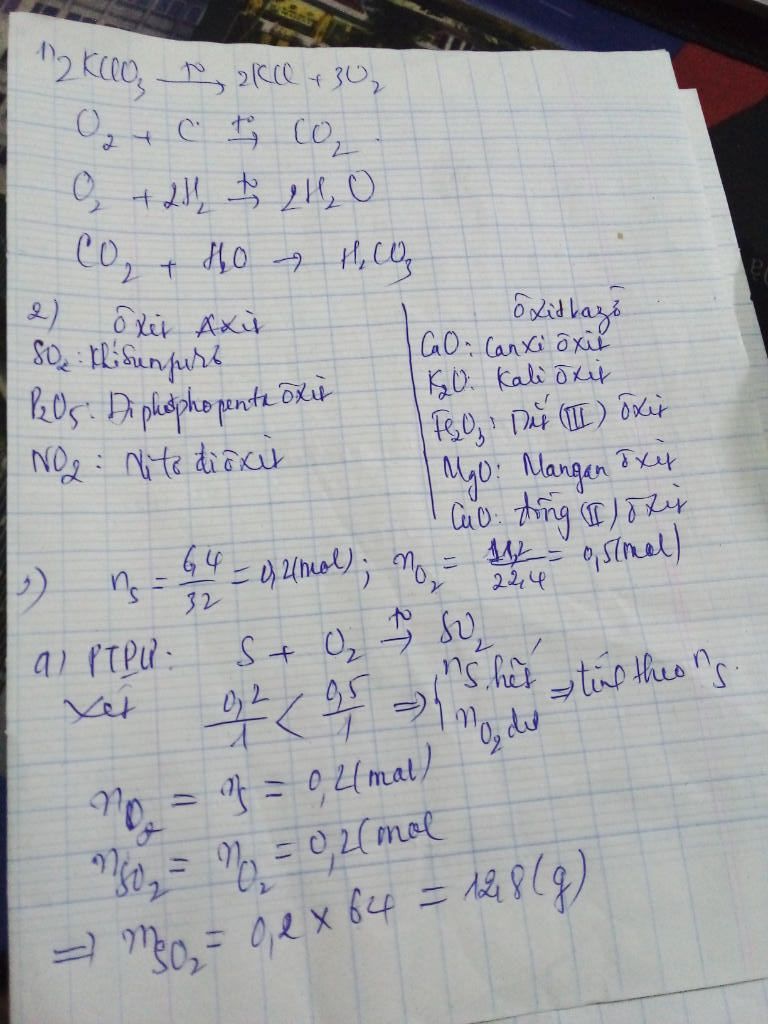 1) 2KClO₃ →(t°) 2KCl + 3O₂
O₂ + C →(t°) CO₂.
O₂ + 2H₂ →(t°) 2H₂O
CO₂ + H₂O → H₂CO₃
2) Ôxit Axit
SO₂: Khí Sunfurơ
P₂O₅: Diphôtphopenta ôxit
NO₂: Nitơ điôxit
Ôxit bazơ
CaO: Canxi ôxit
K₂O: Kali ôxit
Fe₂O₃: Sắt (III) ôxit
MgO: Mangan ôxit
CuO: đồng (II) ôxit
3) nS = 6,4/32 = 0,2(mol); nO₂ = 11,2/22,4 = 0,5(mol)
a) PTPƯ: S + O₂ →(t°) SO₂
Xét 0,2/1 < 0,5/1 ⇒ { nS hết nO₂ dư ⇒ tính theo nS.
nO₂ = nS = 0,2(mol)
nSO₂ = nO₂ = 0,2(mol
⇒ mSO₂ = 0,2 × 64 = 12,8(g)